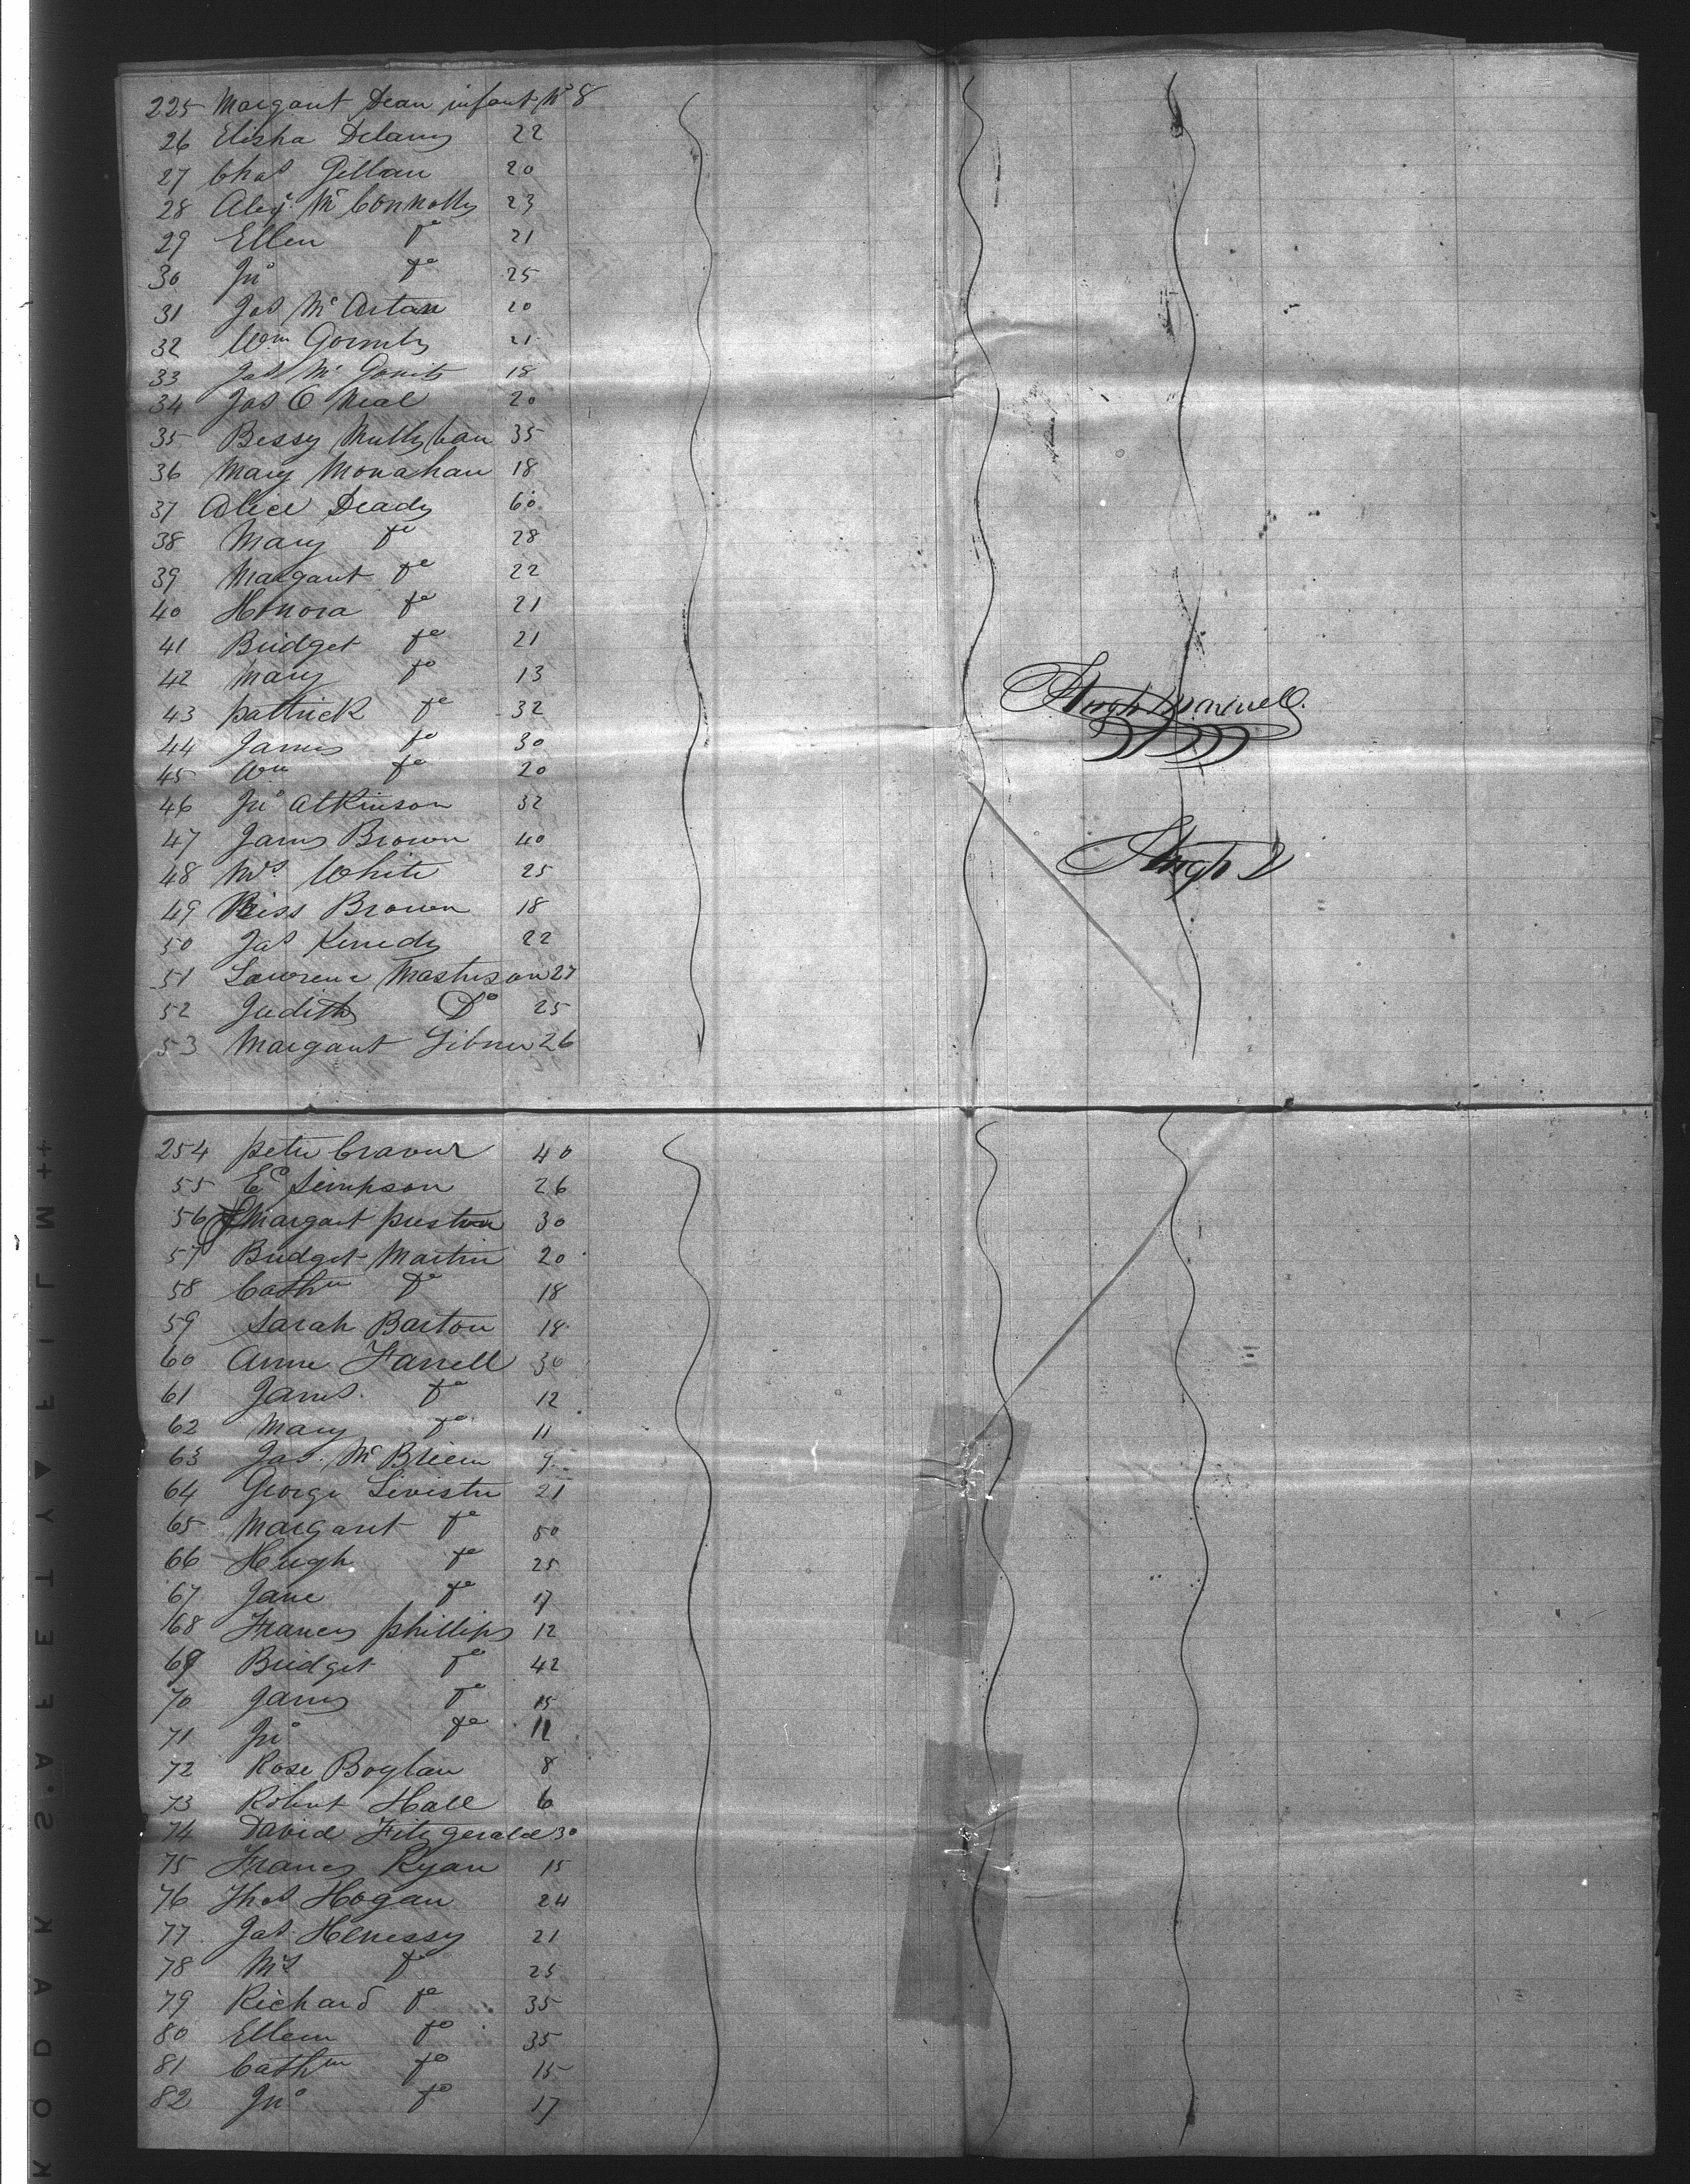 225 Margaret Dean infant Mo 8
26 Elisha Delany 22
27 Chas Gillan 20
28 Alexr Mc Connolly 23
29 Ellen Do 21
30 Jno Do 25
31 Jas Mc Artan 20
32 Wm Gormly 21
33 Jas Mc 18
34 Jas O Neal 20
35 Bessy Mullyhan 35
36 Mary Monahan 18
37 Alice Deady 60
38 Mary Do 28
39 Margaret Do 22
40 Honora Do 21
41 Bridget Do 21
42 Mary Do 13
43 Patrick Do 32
44 James Do 30
45 Wm Do 20
46 Jno Atkinson 32
47 James Brown 40
48 Mrs White 25
49 Miss Brown 18
50 Jas Kenedy 22
51 Lawrence 27
52 Judith Do 25
53 Margaret 26
Hugh Maxwell
Hugh
254 Peter 40
55 Ed Simpson 26
56 Margaret Preston 30
57 Bridget Martin 20
58 Cathn Do 18
59 Sarah Barton 18
60 Anne Farrell 30
61 James Do 12
62 Mary Do 11
63 Jas Mc Brien 9
64 George 21
65 Margaret Do 50
66 Hugh Do 25
67 Jane Do 17
68 Francis Phillips 12
69 Bridget Do 42
70 James Do 15
71 Jno Do 11
72 Rose Boylan 8
73 Robert Hall 6
74 David Fitzgerald 30
75 Francis Ryan 15
76 Thos Hogan 24
77 Jas Henessy 21
78 Mrs Do 25
79 Richard Do 35
80 Ellen Do 35
81 Cathn Do 15
82 Jno Do 17
KODAK S'AFETY FILM